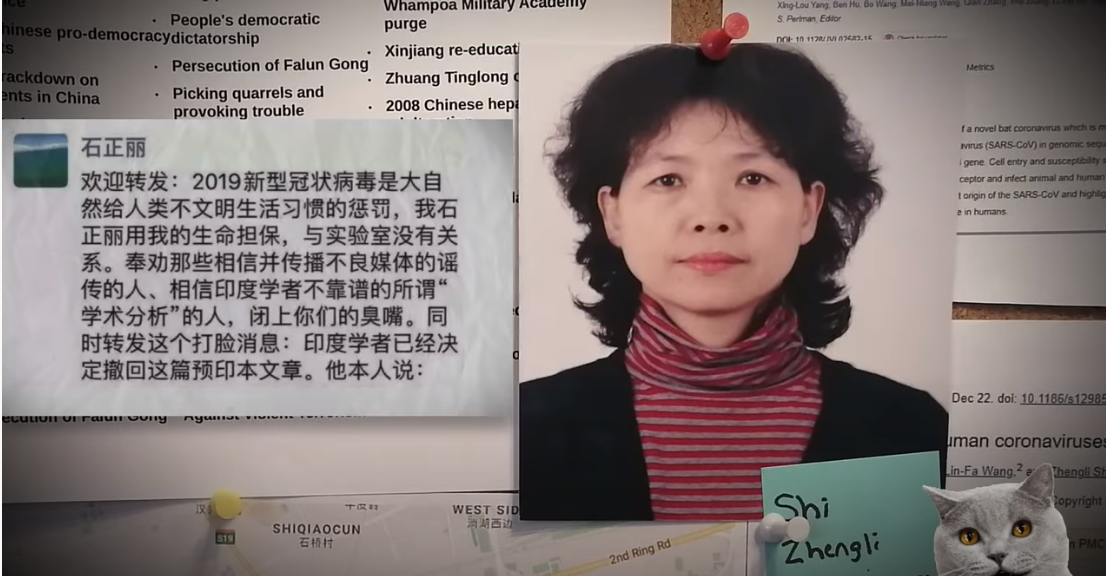 People's democratic
dictatorship
Persecution of Falun Gong
Picking quarrels and
provoking trouble
pro-democracy
crackdown on
in China
Whampoa Military Academy
purge
Xinjiang
Zhuang Tinglong
2008 Chinese
石正丽
欢迎转发：2019新型冠状病毒是大自
然给人类不文明生活习惯的惩罚，我石
正丽用我的生命担保，与实验室没有关
系。奉劝那些相信并传播不良媒体的谣
传的人、相信印度学者不靠谱的所谓“
学术分析”的人，闭上你们的臭嘴。同
时转发这个打脸消息：印度学者已经决
定撤回这篇预印本文章。他本人说：
of Falun Gong
Against Violent
S19
SHIQIAOCUN
石桥村
WEST
2nd Ring Rd
Xing-Lou Yang, Ben Hu, Bo Wang,
S. Perlman, Editor
Metrics
f a novel bat coronavirus which is
(SARS-CoV) in genomic
gene. Cell entry and susceptibility
and infect animal and human
t origin of the SARS-CoV and
in humans.
Dec 22. doi: 10.1186/s12985
coronaviruses
Lin-Fa Wang,2 Zhengli
Copyright
PMC
Shi
Zhengli